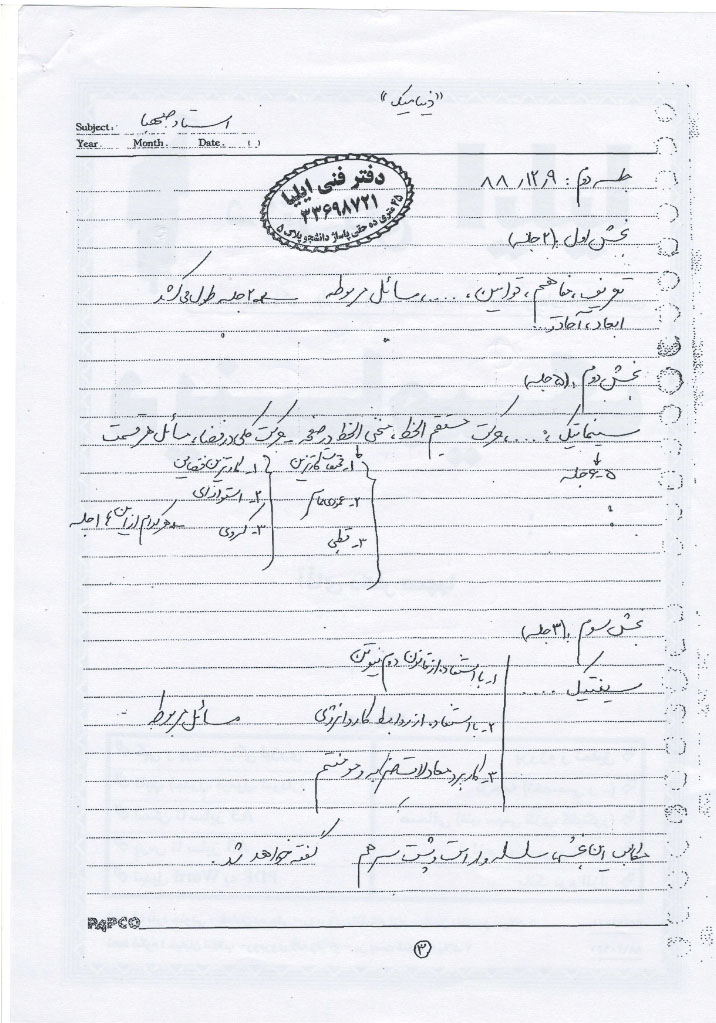 "دینامیک"
Subject: استاد صهبا
Year. Month. Date. ( )
دفتر فنی ایلیا
۳۳۶۹۸۷۲۱
۳۵ متری ده حقی پاساژ دانشجو پلاک ۵
جلسه دوم: ۸۸/۱۲/۹
بخش اول: (۲ جلسه)
تعریف، مفاهیم، قوانین، ....، مسائل مربوطه ۲ جلسه طول می‌کشد
ابعاد، آحاد، ...
بخش دوم: (۵ جلسه)
سینماتیک: ....، حرکت مستقیم الخط، منحنی الخط در صفحه - حرکت کلی در فضا، مسائل هر قسمت
۵-۶ جلسه
۱- کارتزین
۲- عمودی مماس
۳- قطبی
۱- کارتزین فضایی
۲- استوانه‌ای
۳- کروی
هر کدام از این ۶ ۱ جلسه
بخش سوم: (۳ جلسه)
سینتیک ....
۱- با استفاده از قانون دوم نیوتن
۲- با استفاده از روابط کار و انرژی
۳- کاربرد معادلات ضربه و مومنتم
مسائل مربوطه
مطالب این بخش سلسله وار است و پشت سر هم گفته خواهد شد.
PAPCO
۳